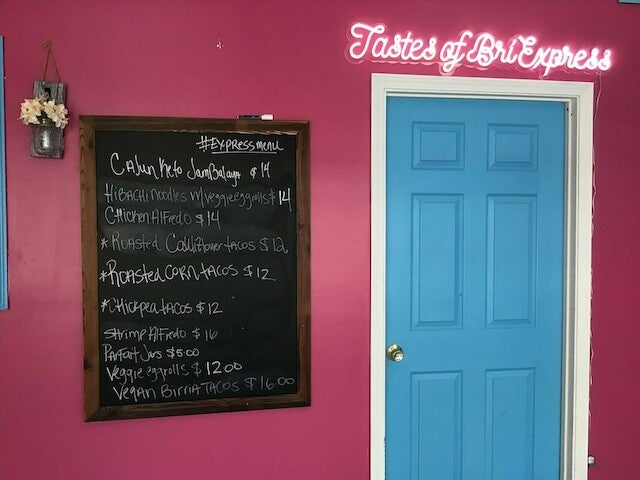 Tastes of BriExpress
#Expressmenu
Cajun Keto Jambalaya $14
Hibachi noodles w/veggie eggrolls $14
Chicken Alfredo $14
*Roasted Cauliflower tacos $12
*Roasted Corn tacos $12
*Chickpea tacos $12
Shrimp Alfredo $16
Parfait Jars $5.00
Veggie eggrolls $12.00
Vegan Birria Tacos $16.00